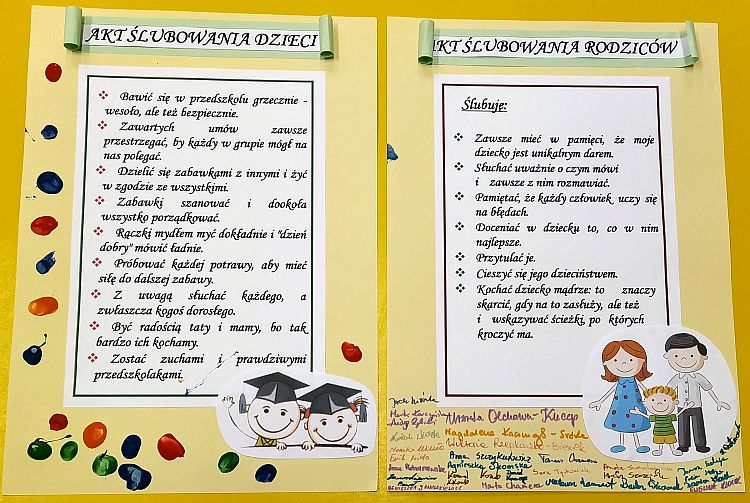 AKT ŚLUBOWANIA DZIECI
Bawić się w przedszkolu grzecznie -
wesoło, ale też bezpiecznie.
Zawartych umów zawsze
przestrzegać, by każdy w grupie mógł na
nas polegać.
Dzielić się zabawkami z innymi i żyć
w zgodzie ze wszystkimi.
Zabawki szanować i dookoła
wszystko porządkować.
Rączki mydłem myć dokładnie i "dzień
dobry" mówić ładnie.
Próbować każdej potrawy, aby mieć
siłę do dalszej zabawy.
Z uwagą słuchać każdego, a
zwłaszcza kogoś dorosłego.
Być radością taty i mamy, bo tak
bardzo ich kochamy.
Zostać zuchami i prawdziwymi
przedszkolakami.
AKT ŚLUBOWANIA RODZICÓW
Ślubuję:
Zawsze mieć w pamięci, że moje
dziecko jest unikalnym darem.
Słuchać uważnie o czym mówi
i zawsze z nim rozmawiać.
Pamiętać, że każdy człowiek uczy się
na błędach.
Doceniać w dziecku to, co w nim
najlepsze.
Przytulać je.
Cieszyć się jego dzieciństwem.
Kochać dziecko mądrze: to znaczy
skarcić, gdy na to zasłuży, ale też
i wskazywać ścieżki, po których
kroczyć ma.
Magdalena
Anna
Agnieszka
Marta